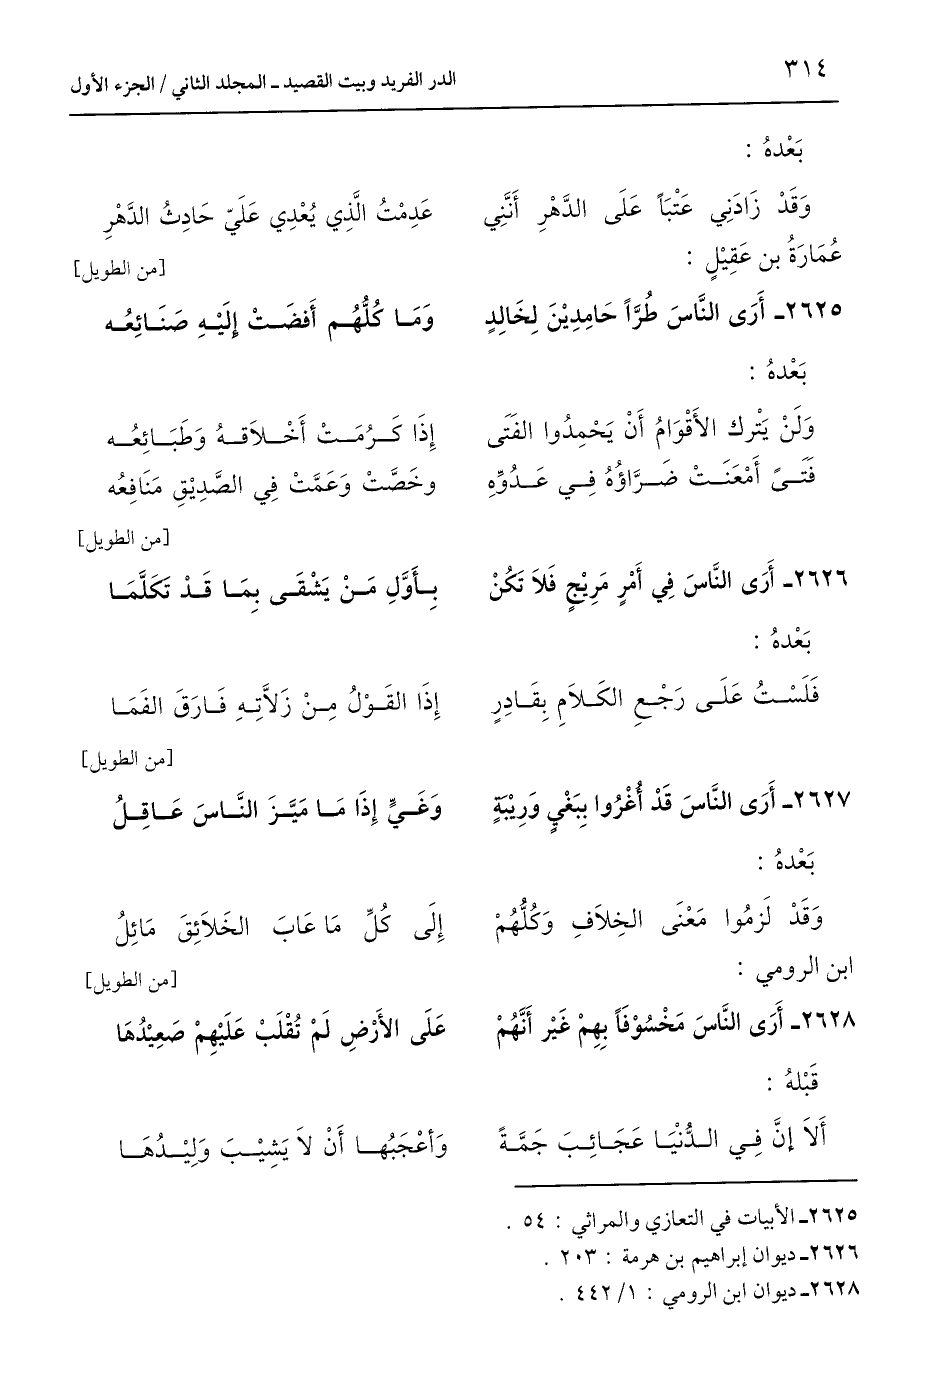 ٣١٤
الدر الفريد وبيت القصيد ـ المجلد الثاني / الجزء الأول
بَعْدهُ :
وَقَدْ زَادَنِي عَتْبَاً عَلَى الدَّهْرِ أَنَّنِي عَدِمْتُ الَّذِي يُعْدِي عَلَيّ حَادِثُ الدَّهْرِ
عُمَارَةُ بن عَقِيْلٍ :
[من الطويل]
٢٦٢٥ـ أَرَى النَّاسَ طُرَّاً حَامِدِيْنَ لِخَالِدٍ وَمَـا كُلُّهُـم أَفضَـتْ إِلَيْـهِ صَنَـائِعُـه
بَعْدهُ :
وَلَنْ يَتْرك الأَقْوَامُ أَنْ يَحْمِدُوا الفَتَى إِذَا كَـرُمَـتْ أَخْـلاَقـهُ وَطَبَـائِعُـه
فَتَـىً أَمْعَنَـتْ ضَـرَّاؤُهُ فِـي عَـدُوِّهِ وخَصَّتْ وَعَمَّتْ فِي الصَّدِيْقِ مَنَافِعُه
[من الطويل]
٢٦٢٦ـ أَرَى النَّاسَ فِي أَمْرٍ مَرِيْجٍ فَلاَ تَكُنْ بِـأَوَّلِ مَـنْ يَشْقَـى بِمَـا قَـدْ تَكَلَّمَـا
بَعْدهُ :
فَلَسْـتُ عَلَـى رَجْـعِ الكَـلاَمِ بِقَـادِرٍ إِذَا القَـوْلُ مِـنْ زَلاَّتِـهِ فَـارَقَ الفَمَـا
[من الطويل]
٢٦٢٧ـ أَرَى النَّاسَ قَدْ أُغْرُوا بِبَغْيٍ وَرِيْبَةٍ وَغَـيٍّ إِذَا مَـا مَيَّـزَ النَّـاسَ عَـاقِـلُ
بَعْدهُ :
وَقَدْ لَزمُوا مَعْنَى الخِلاَفِ وَكُلُّهُمْ إِلَى كُلِّ مَا عَابَ الخَلاَئِقَ مَائِلُ
ابن الرومي :
[من الطويل]
٢٦٢٨ـ أَرَى النَّاسَ مَخْسُوْفَاً بِهِمْ غَيْر أَنَّهُمْ عَلَى الأَرْضِ لَمْ تُقْلَبْ عَلَيْهِمْ صَعِيْدُهَا
قَبْلهُ :
أَلاَ إنَّ فِـي الـدُّنْيَـا عَجَـائِـبَ جَمَّـةً وَأَعْجَبُهـا أَنْ لاَ يَشِيْـبَ وَلِيْـدُهَـا
٢٦٢٥ـ الأبيات في التعازي والمراثي : ٥٤ .
٢٦٢٦ـ ديوان إبراهيم بن هرمة : ٢٠٣ .
٢٦٢٨ـ ديوان ابن الرومي : ١/ ٤٤٢ .